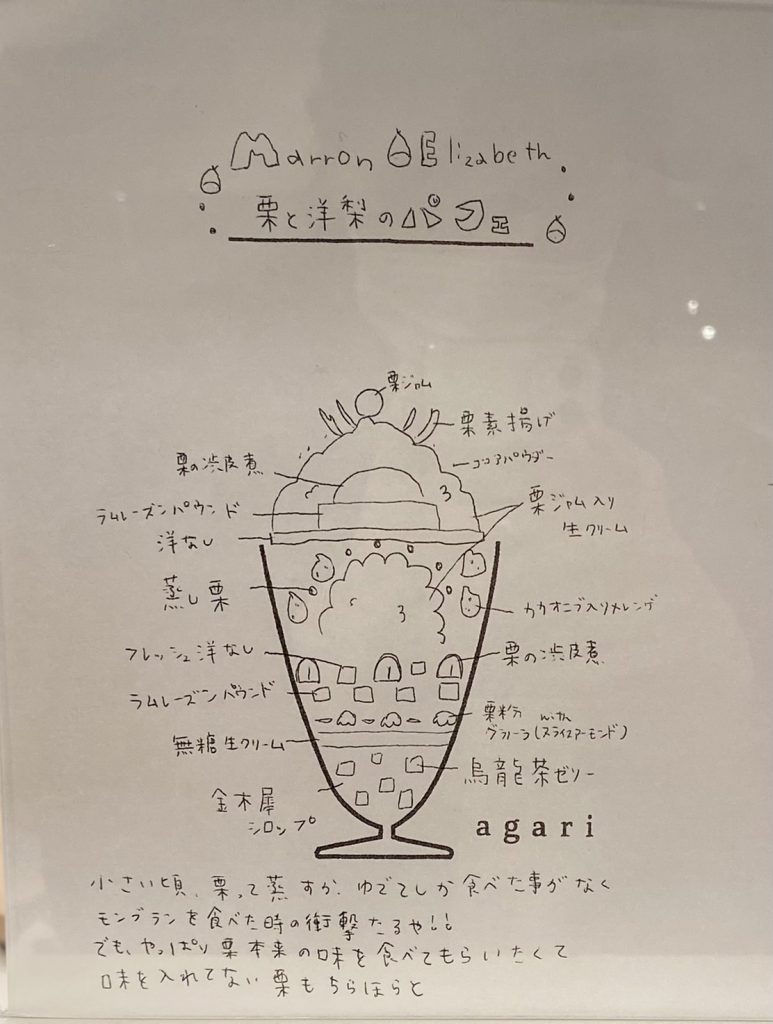 Marron Elizabeth
栗と洋梨のパフェ
栗ジャム
栗素揚げ
栗の渋皮煮
ココアパウダー
ラムレーズンパウンド
栗ジャム入り
生クリーム
洋なし
蒸し栗
カカオニブ入りメレンゲ
フレッシュ洋なし
栗の渋皮煮
ラムレーズンパウンド
栗粉 with
グラノーラ(スライスアーモンド)
無糖生クリーム
烏龍茶ゼリー
金木犀
シロップ
agari
小さい頃、栗って蒸すか、ゆでてしか食べた事がなく
モンブランを食べた時の衝撃たるや!!
でも、やっぱり栗本来の味を食べてもらいたくて
味を入れてない栗もちらほらと